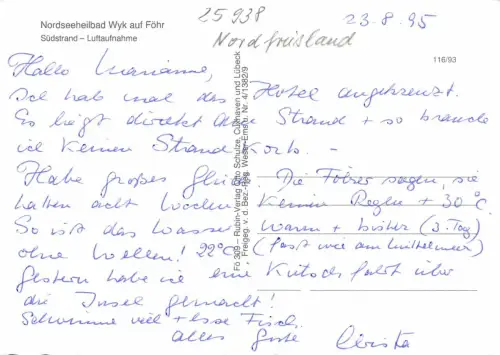 Nordseeheilbad Wyk auf Föhr
Südstrand – Luftaufnahme
25938
Nordfriesland
23.8.95
116/93
Hallo Marianne,
Ich hab mal das Hotel angekreuzt.
Es liegt direkt am Strand + so brauche
ich keinen Strandkorb. –
Habe großes Glück. Die Föhrer sagen, sie
hatten acht Wochen keinen Regen + 30°C.
So ist das Wasser warm + bisher (3. Tag)
ohne Wellen! 22°C (fast wie am Mittelmeer)
Gestern habe ich eine Kutschfahrt über
die Insel gemacht!
Schwimme viel + esse Fisch.
Alles Gute Christa
Fö 309 – Rubin-Verlag Otto Schulze, Cuxhaven und Lübeck
Freigeg. d. d. Bez. Reg. Weser-Ems u. Nr. 4/1382/9